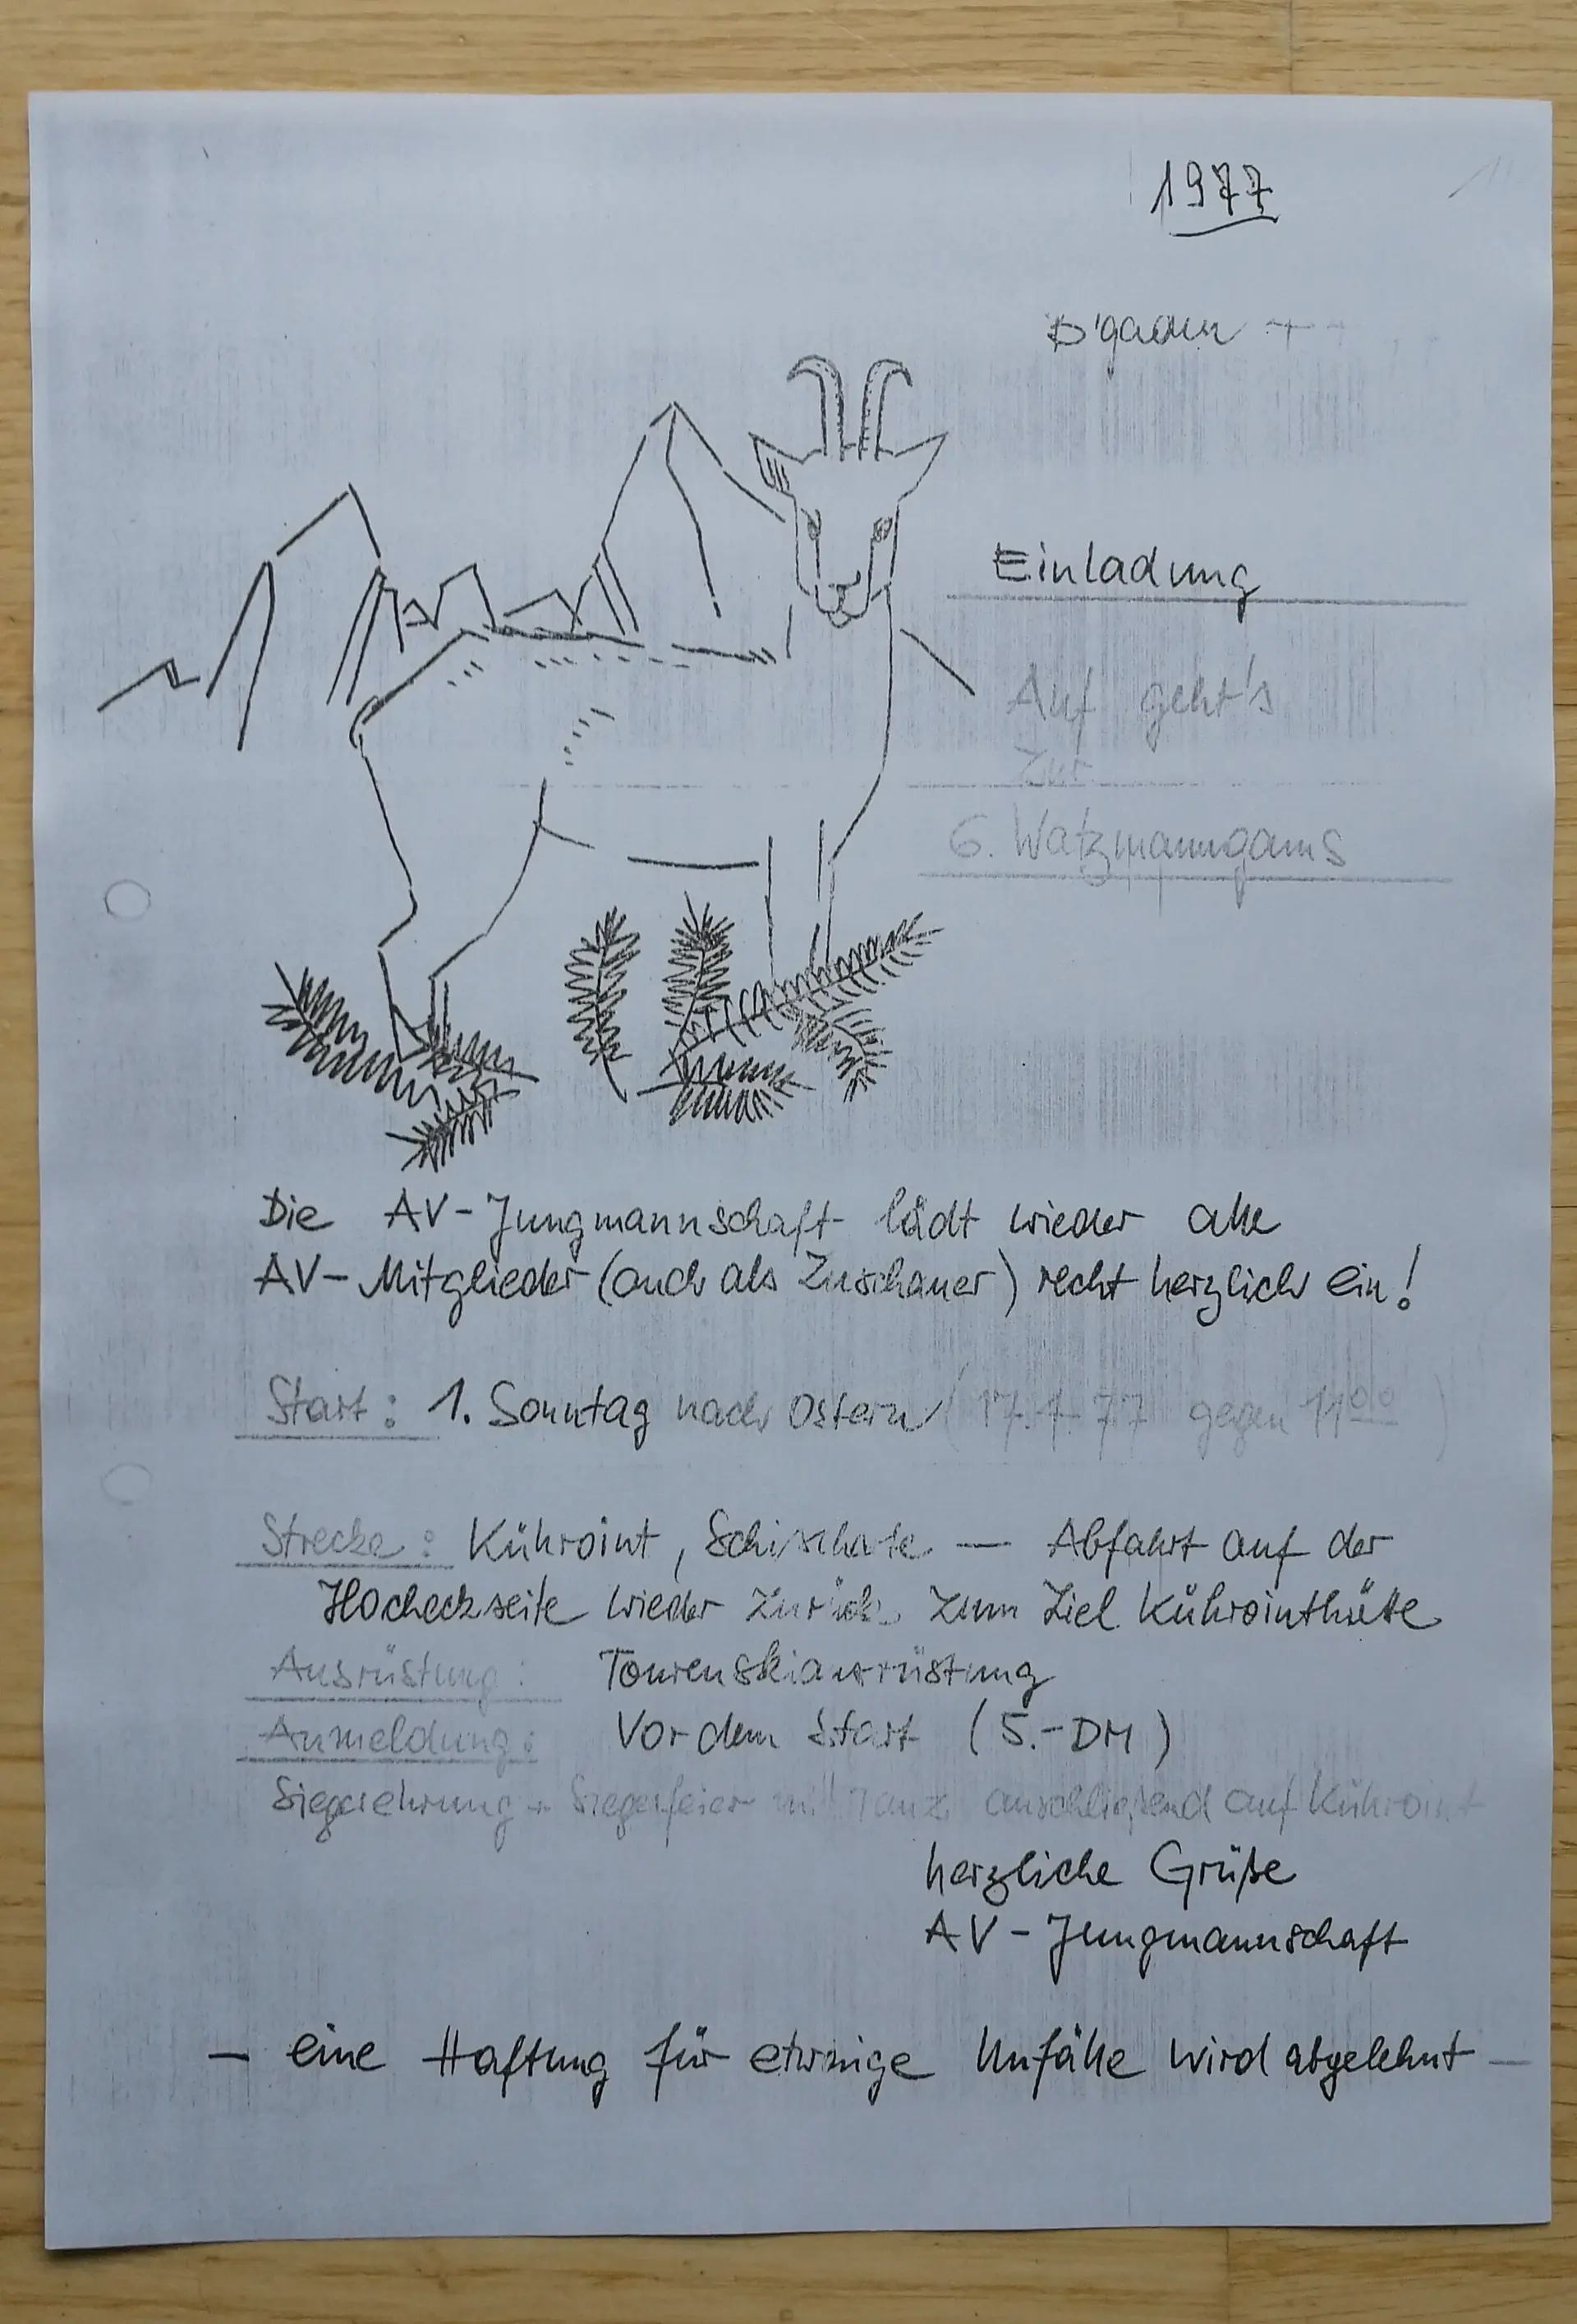 1977
B'gaden
Einladung
Auf geht's
zur
6. Watzmanngams
Die AV-Jungmannschaft lädt wieder alle
AV-Mitglieder (auch als Zuschauer) recht herzlich ein!
Start: 1. Sonntag nach Ostern (17.4.77 gegen 11⁰⁰)
Strecke: Kühroint, Schischarte — Abfahrt auf der
Hocheckseite wieder zurück zum Ziel Kührointhütte
Ausrüstung: Tourenskiausrüstung
Anmeldung: Vor dem Start (5.-DM)
Siegerehrung + Siegerfeier mit Tanz anschließend auf Kühroint
herzliche Grüße
AV-Jungmannschaft
— eine Haftung für etwaige Unfälle wird abgelehnt —